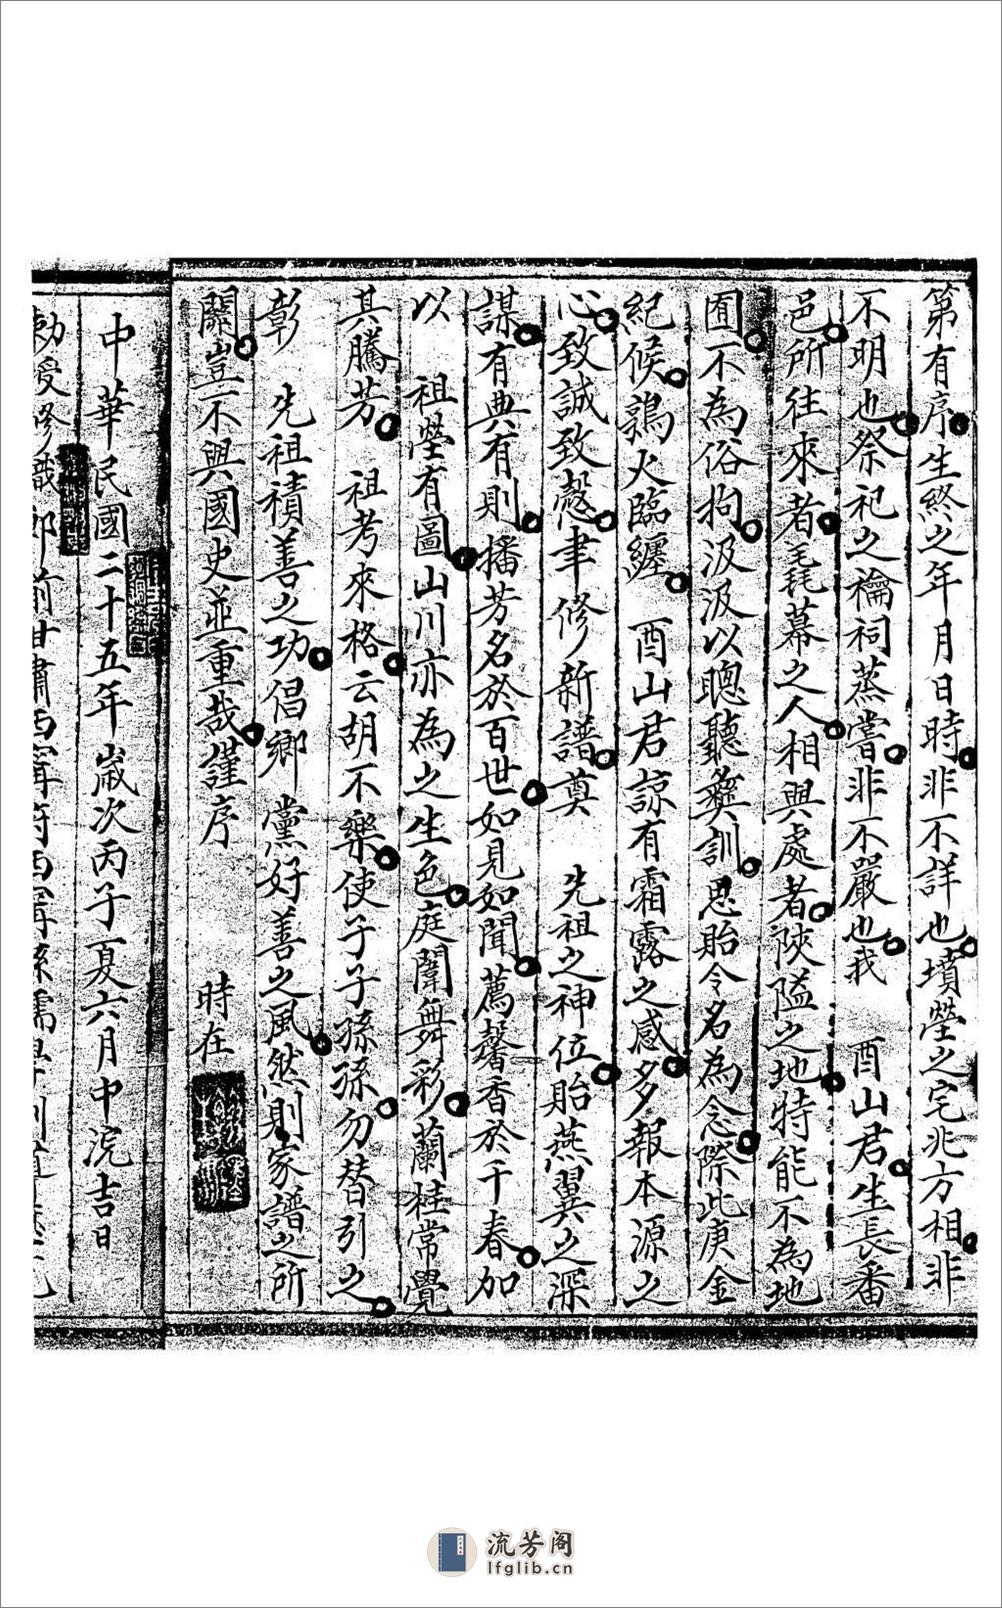 第有序生終之年月日時非不詳也墳塋之宅兆方相非
不明也祭祀之禴祠蒸嘗非不嚴也我　酉山君生長番
邑所往來者毳幕之人相與處者陝隘之地特能不為地
囿不為俗拘汲汲以聰聽彝訓思貽令名為念際此庚金
紀候鶉火臨纏　酉山君諒有霜露之感多報本源之
心致誠致愨聿修新譜奠　先祖之神位貽燕翼之深
謀有典有則播芳名於百世如見如聞薦馨香於千春加
以　祖塋有圖山川亦為之生色庭闈舞彩蘭桂常覺
其騰芳　祖考來格云胡不樂使子子孫孫勿替引之
彰　先祖積善之功倡鄉黨好善之風然則家譜之所
關豈不與國史並重哉謹序　時在
中華民國二十五年歲次丙子夏六月中浣吉日
勅授修職郎前甘肅西寧府西寧縣儒學訓導
流芳阁
lfglib.cn